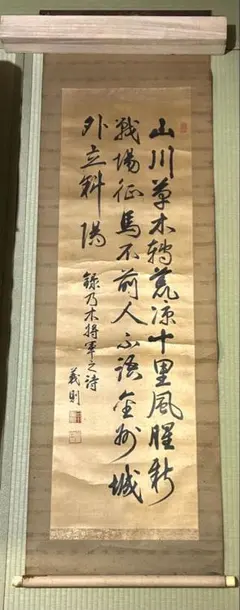 山川草木轉荒涼十里風腥新
戰場征馬不前人不語金州城
外立斜陽
錄乃木將軍之詩
義則